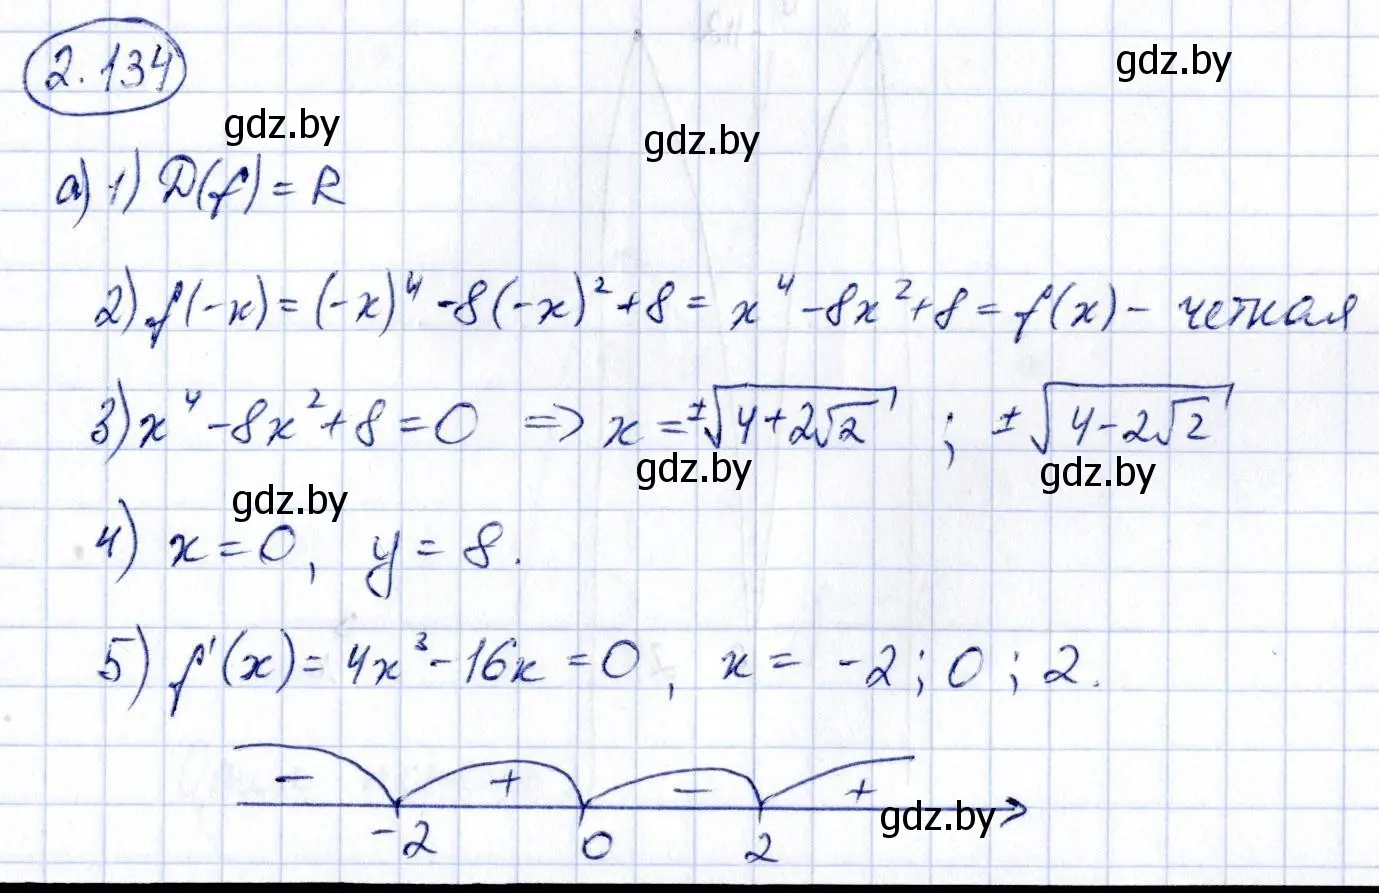 2.134
gdz.by
gdz.by
gdz.by
а) 1) D(f) = R
2) f(-x) = (-x)⁴ - 8(-x)² + 8 = x⁴ - 8x² + 8 = f(x) - четная
3) x⁴ - 8x² + 8 = 0 => x = ±√(4+2√2) ; ±√(4-2√2)
gdz.by
gdz.by
gdz.by
4) x = 0, y = 8.
5) f'(x) = 4x³ - 16x = 0, x = -2; 0; 2.
- + - +
gdz.by
-2 0 2